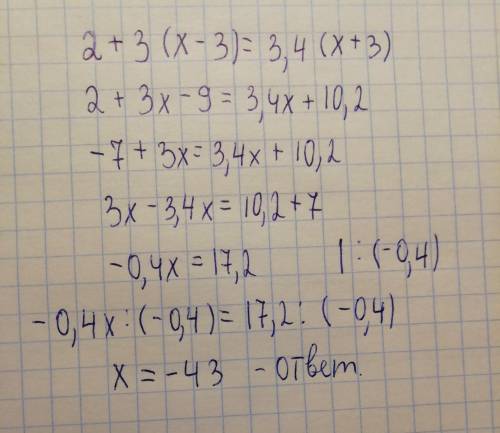 2 + 3 (x - 3) = 3,4 (x + 3)
2 + 3x - 9 = 3,4x + 10,2
-7 + 3x = 3,4x + 10,2
3x - 3,4x = 10,2 + 7
-0,4x = 17,2 | : (-0,4)
-0,4x : (-0,4) = 17,2 : (-0,4)
x = -43 - ответ.